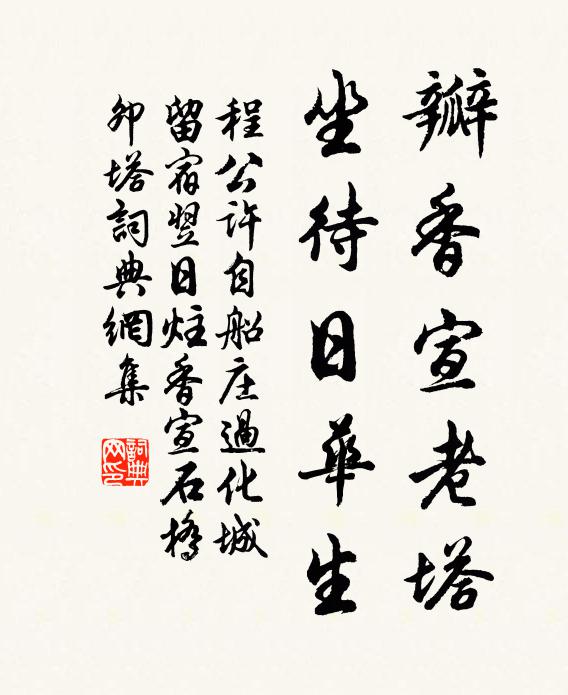 瓣香宣老塔
坐待日華生
程公許自船庄過化城
留宿翌日炷香宣石橋
卯塔詞典網集
詞典
网印